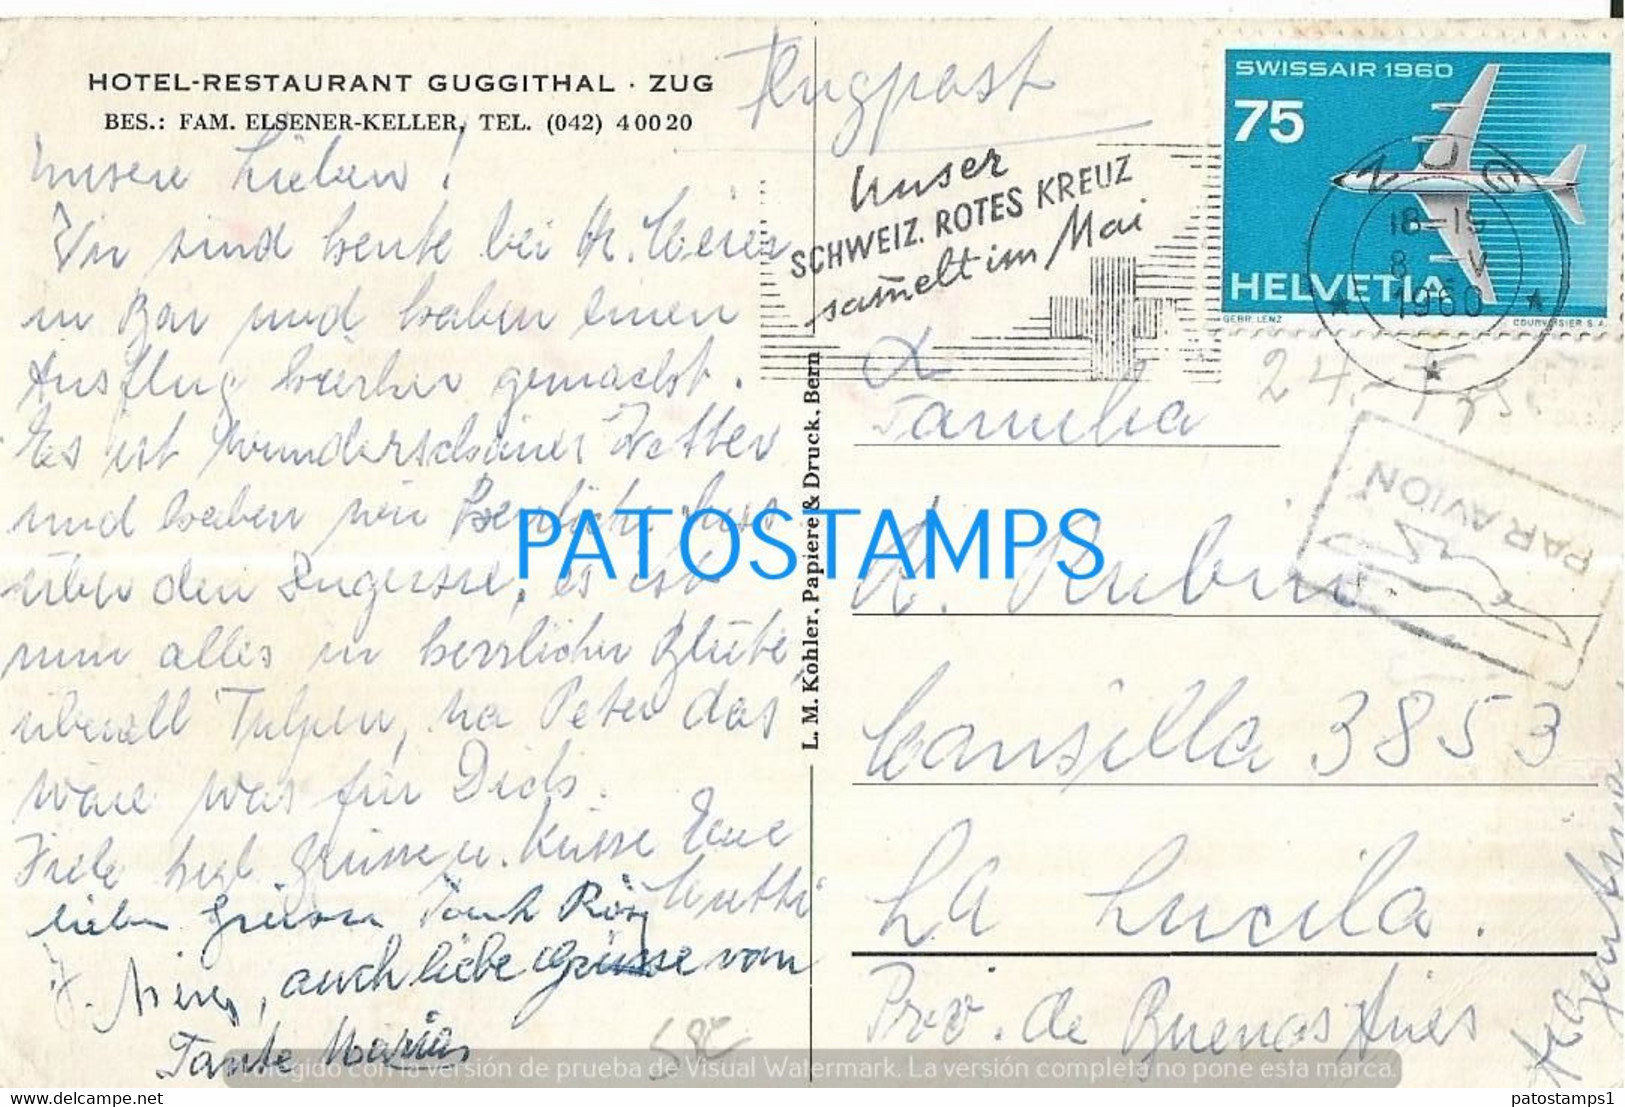 HOTEL-RESTAURANT GUGGITHAL · ZUG
BES.: FAM. ELSENER-KELLER, TEL. (042) 4 00 20
Flugpost
Unsere Lieben!
Wir sind heute bei
in Bar und haben einen
Ausflug hierher gemacht.
Es ist wunderschönes Wetter
und haben wir herrliche
über den Zugersee, es ist
nun alles in herrlicher Blüte,
überall Tulpen, na Peter das
wäre was für Dich.
Viele herzl. Grüsse u. Küsse Eure
Mutti
lieben Grüssen Tante Rösy
auch liebe Grüsse von
Tante Maria
58E
L. M. Kohler, Papiere & Druck, Bern
Unser
SCHWEIZ. ROTES KREUZ
sam̄elt im Mai
SWISSAIR 1960
75
HELVETIA
GEBR. LENZ
COURVOISIER S.A.
ZUG
18-19
8 V
1960
PAR AVION
Familia
A. Rubin
Mansilla 3853
La Lucila.
Prov. de Buenos Aires
Argentina
PATOSTAMPS
Protegido con la versión de prueba de Visual Watermark. La versión completa no pone esta marca.
www.delcampe.net
patostamps1